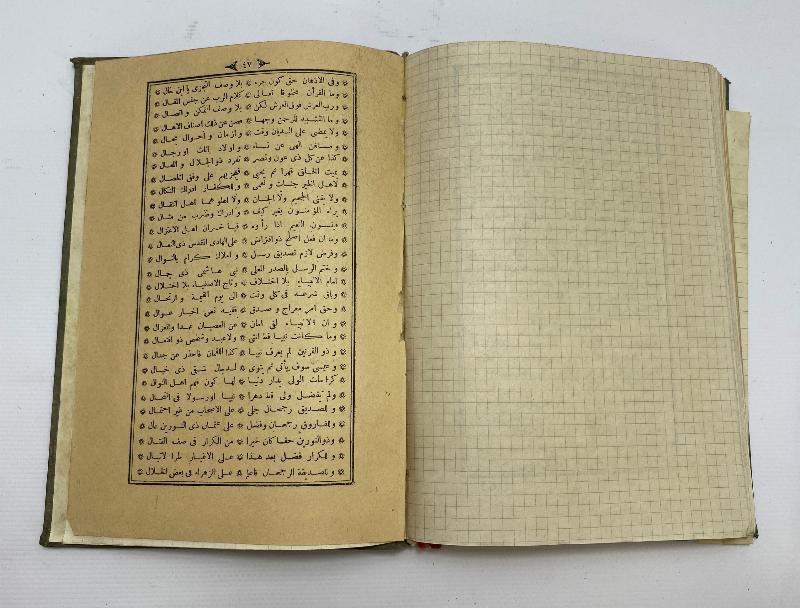 ٤٧
وفى الاذهان حق كون جزء * بلا وصف التجزى يا ابن خال
وما القرآن مخلوقا تعالى * كلام الرب عن جنس المقال
ورب العرش فوق العرش لكن * بلا وصف التمكن واتصال
وما التشبيه للرحمن وجها * فصن عن ذاك اصناف الاهالى
ولا يمضى على الديان وقت * وازمان واحوال بحال
ومستغن الهى عن نساء * واولاد اناث او رجال
كذا عن كل ذى عون ونصر * تفرد ذو الجلال وذو المعالى
يميت الخلق قهرا ثم يحيى * فيجزيهم على وفق الخصال
لاهل الخير جنات ونعمى * وللكفار ادراك النكال
ولا يفنى الجحيم ولا الجنان * ولا اهلوهما اهل انتقال
يراه المؤمنون بغير كيف * وادراك وضرب من مثال
فينسون النعيم اذا رأوه * فيا خسران اهل الاعتزال
وما ان فعل اصلح ذو افتراض * على الهادى المقدس ذى التعال
وفرض لازم تصديق رسل * واملاك كرام بالنوال
وختم الرسل بالصدر المعلى * نبى هاشمى ذى جمال
امام الانبياء بلا اختلاف * وتاج الاصفياء بلا اختلال
وباق شرعه فى كل وقت * الى يوم القيمة وارتحال
وحق امر معراج وصدق * ففيه نص اخبار عوال
وان الانبياء لفى امان * عن العصيان عمدا وانعزال
وما كانت نبيا قط انثى * ولا عبد وشخص ذو افتعال
وذو القرنين لم يعرف نبيا * كذا لقمان فاحذر عن جدال
وعيسى سوف يأتى ثم يتوى * لدجال شقى ذى خبال
كرامات الولى بدار دنيا * لها كون فهم اهل النوال
ولم يفضل ولى قط دهرا * نبيا او رسولا فى انتحال
وللصديق رجحان جلى * على الاصحاب من غير احتمال
وللفاروق رجحان وفضل * على عثمان ذى النورين عال
وذو النورين حقا كان خيرا * من الكرار فى صف القتال
وللكرار فضل بعد هذا * على الاغيار طرا لا تبال
وللصديقة الرجحان فاعلم * على الزهراء فى بعض الخلال